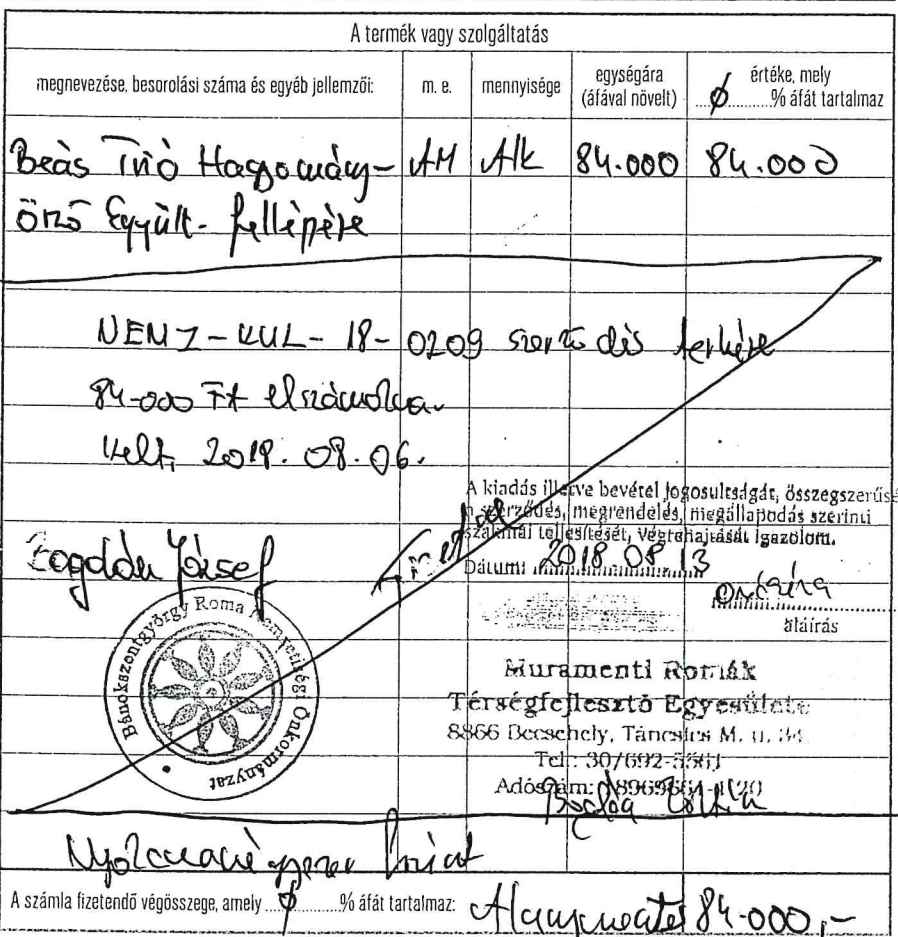 A termék vagy szolgáltatás
megnevezése, besorolási száma és egyéb jellemzői: m. e. mennyisége egységára (áfával növelt) értéke, mely ø % áfát tartalmaz
Beás Trió Hagyomány- AM Alk 84.000 84.000
őrző Együtt. fellépése
NEMZ-KUL-18-0209 szerződés terhére
84.000 Ft elszámolva.
Kelt, 2018. 08. 06.
A kiadás illetve bevétel jogosultságát, összegszerűsé
a szerződés, megrendelés, megállapodás szerinti
szakmai teljesítését, végrehajtását igazolom.
Bogdán József
Dátum: 2018 08 13
aláírás
Bánokszentgyörgy Roma Nemzetiségi Önkormányzat
Muramenti Romák
Térségfejlesztő Egyesülete
8866 Becsehely, Táncsics M. u. 34.
Tel.: 30/692-
Adószám:
Nyolcvannégyezer forint
A számla fizetendő végösszege, amely ø % áfát tartalmaz: Alanyi mentes 84.000,-